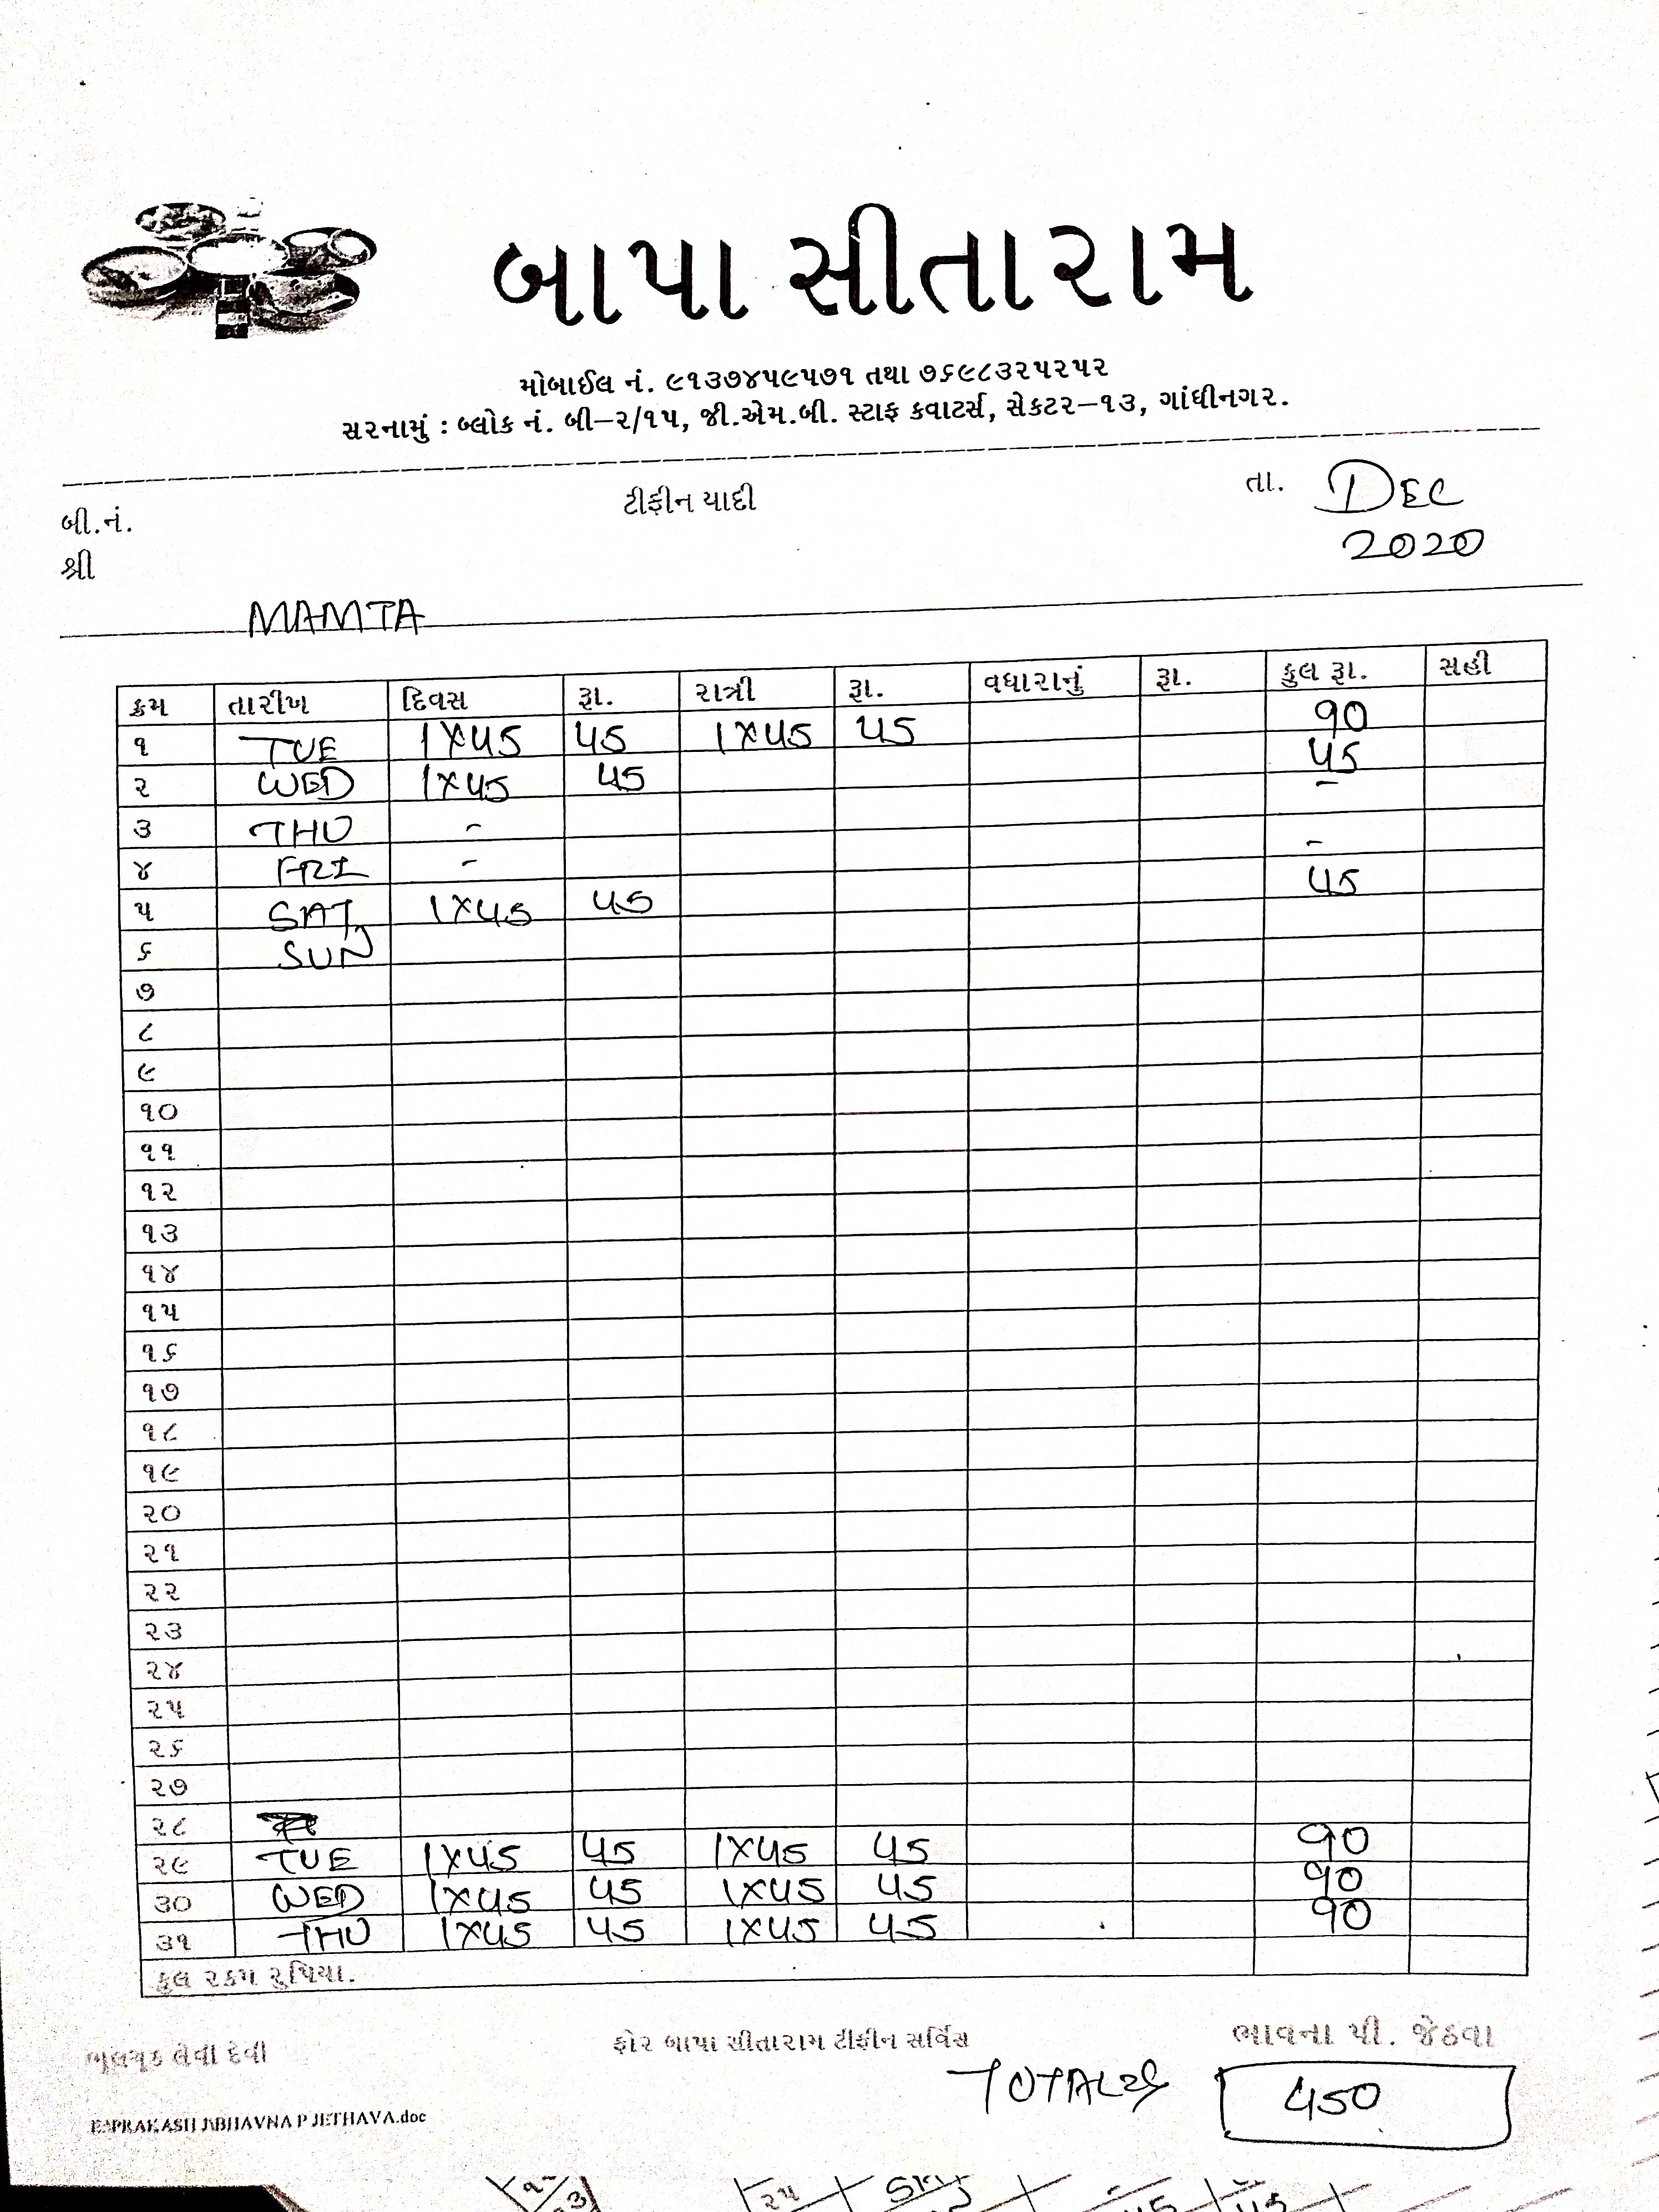 બાપા સીતારામ
મોબાઈલ નં. ૯૧૩૭૪૫૯૫૭૧ તથા ૭૬૯૮૩૨૫૨૫૨
સરનામું : બ્લોક નં. બી–૨/૧૫, જી.એમ.બી. સ્ટાફ કવાટર્સ, સેકટર–૧૩, ગાંધીનગર.
ટીફીન યાદી
તા. DEC
બી.નં.
2020
શ્રી
MAMTA
ક્રમ તારીખ દિવસ રૂા. રાત્રી રૂા. વધારાનું રૂા. કુલ રૂા. સહી
૧ TUE 1X45 45 1X45 45 90
૨ WED 1X45 45 45
૩ THU - -
૪ FRI - -
૫ SAT 1X45 45 45
૬ SUN
૭
૮
૯
૧૦
૧૧
૧૨
૧૩
૧૪
૧૫
૧૬
૧૭
૧૮
૧૯
૨૦
૨૧
૨૨
૨૩
૨૪
૨૫
૨૬
૨૭
૨૮
૨૯ TUE 1X45 45 1X45 45 90
૩૦ WED 1X45 45 1X45 45 90
૩૧ THU 1X45 45 1X45 45 90
કુલ રકમ રૂપિયા.
ભૂલચૂક લેવી દેવી
ફોર બાપા સીતારામ ટીફીન સર્વિસ
ભાવના પી. જેઠવા
450
BHAVNA P JETHAVA.doc